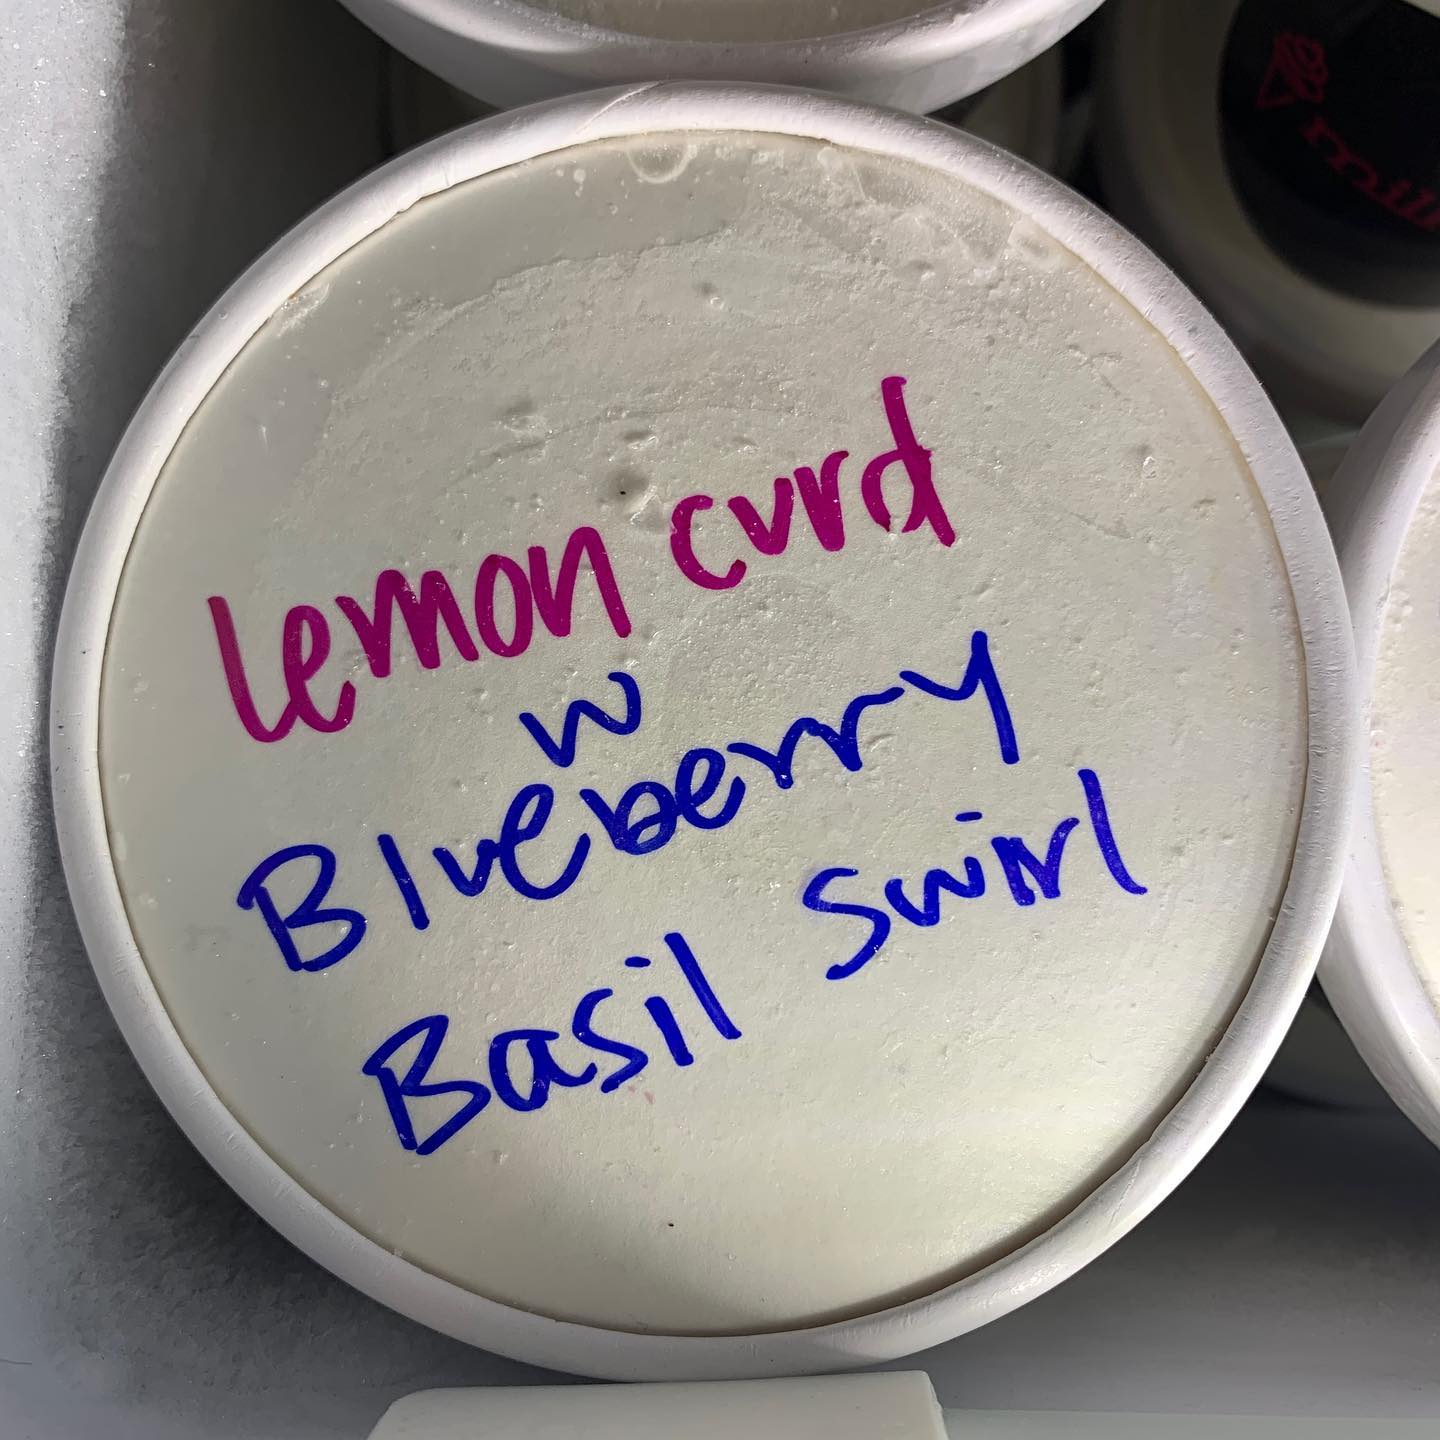 lemon curd
w
Blueberry
Basil Swirl